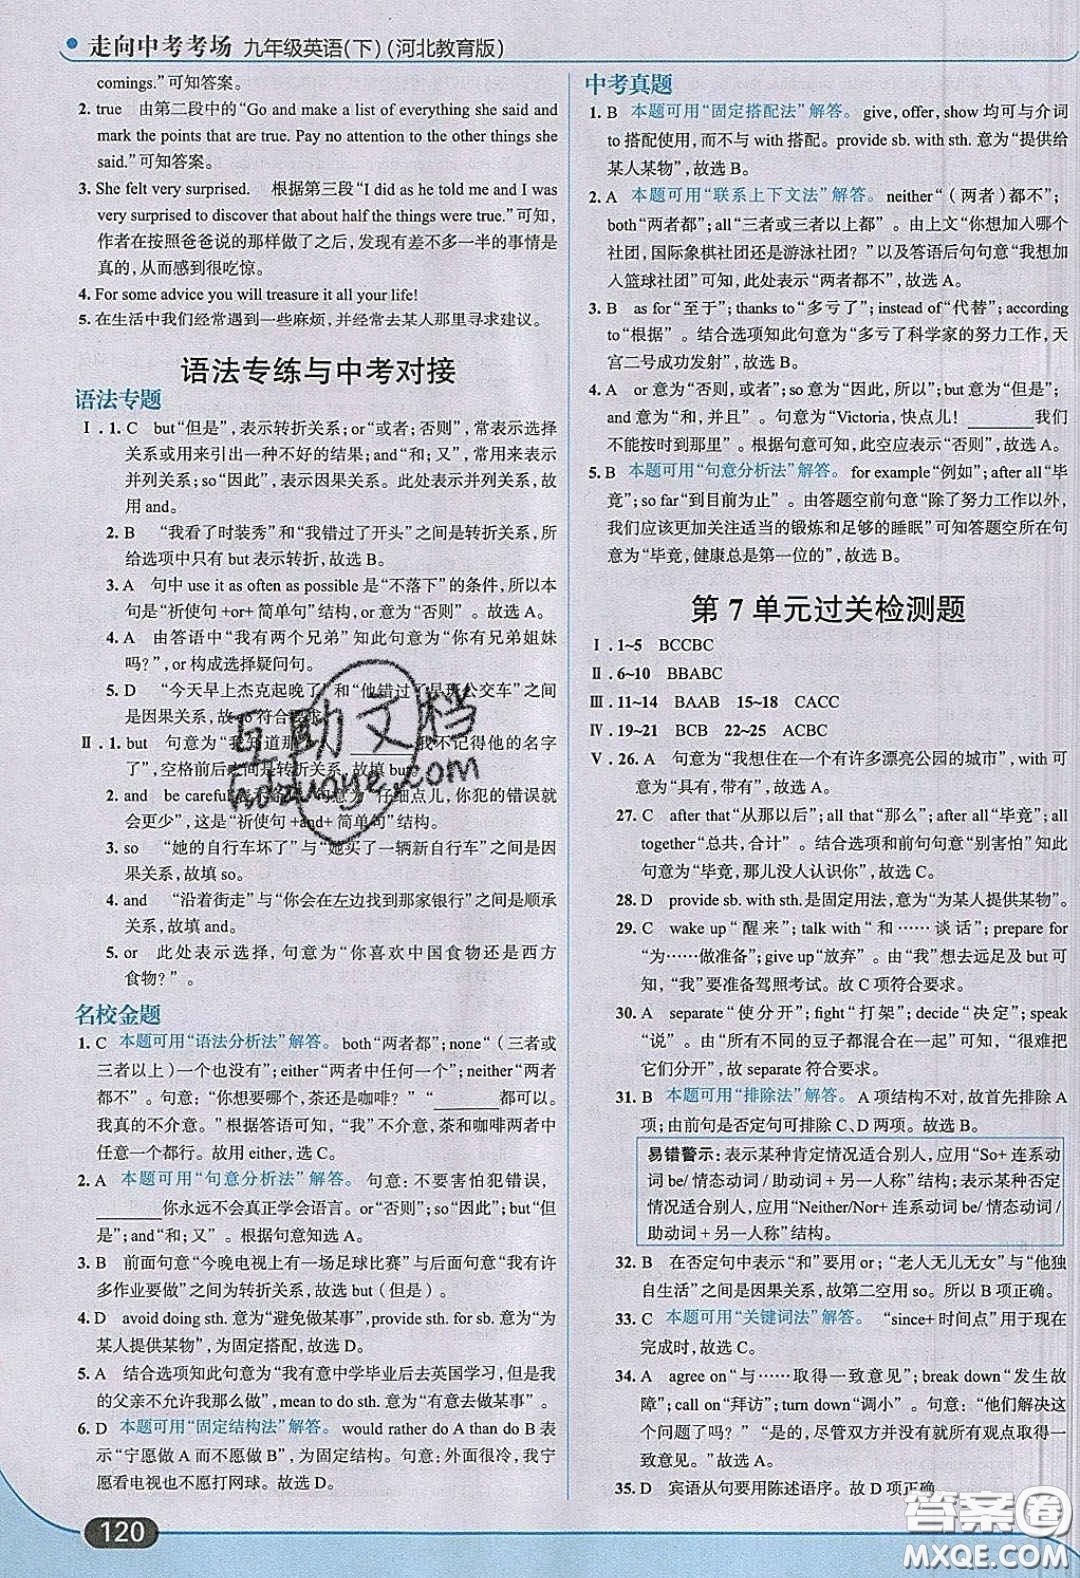 走向中考考场 九年级英语(下)(河北教育版)
comings.”可知答案。
2. true 由第二段中的“Go and make a list of everything she said and
mark the points that are true. Pay no attention to the other things she
said.”可知答案。
3. She felt very surprised. 根据第三段“I did as he told me and I was
very surprised to discover that about half the things were true.”可知,
作者在按照爸爸说的那样做了之后,发现有差不多一半的事情是
真的,从而感到很吃惊。
4. For some advice you will treasure it all your life!
5. 在生活中我们经常遇到一些麻烦,并经常去某人那里寻求建议。
语法专练与中考对接
语法专题
Ⅰ. 1. C but“但是”,表示转折关系;or“或者;否则”,常表示选择
关系或用来引出一种不好的结果;and“和;又”,常用来表示
并列关系;so“因此”,表示因果关系。此处表示并列关系,故
用 and。
2. B “我看了时装秀”和“我错过了开头”之间是转折关系,所
给选项中只有 but 表示转折,故选 B。
3. A 句中 use it as often as possible 是“不落下”的条件,所以本
句是“祈使句 +or+ 简单句”结构,or 意为“否则”。故选 A。
4. A 由答语中“我有两个兄弟”知此句意为“你有兄弟姐妹
吗?”,or 构成选择疑问句。
5. D “今天早上杰克起晚了”和“他错过了早班公交车”之间
是因果关系,故 so 符合要求。
Ⅱ. 1. but 句意为“我知道那人,______我不记得他的名字
了”,空格前后之间是转折关系,故填 but。
2. and be careful 句意为“仔细点儿,你犯的错误就
会更少”,这是“祈使句 +and+ 简单句”结构。
3. so “她的自行车坏了”与“她买了一辆新自行车”之间是因
果关系,故填 so。
4. and “沿着街走”与“你会在左边找到那家银行”之间是顺承
关系,故填 and。
5. or 此处表示选择,句意为“你喜欢中国食物还是西方
食物?”。
名校金题
1. C 本题可用“语法分析法”解答。both“两者都”;none“(三者或
三者以上)一个也没有”;either“两者中任何一个”;neither“两者
都不”。句意:“你想要哪个,茶还是咖啡?”“______都可以。
我真的不介意。”根据答语可知,“我”不介意,茶和咖啡两者中
任意一个都行。故用 either,选 C。
2. A 本题可用“句意分析法”解答。句意:不要害怕犯错误,
______你永远不会真正学会语言。or“否则”;so“因此”;but
“但是”;and“和;又”。根据句意知选 A。
3. B 前面句意“今晚电视上有一场足球比赛”与后面句意“我有许
多作业要做”之间为转折关系,故选 but(但是)。
4. D avoid doing sth. 意为“避免做某事”,provide sth. for sb. 意为“为
某人提供某物”,为固定搭配,故选 D。
5. A 结合选项知此句意为“我有意中学毕业后去英国学习,但是我
的父亲不允许我那么做”,mean to do sth. 意为“有意去做某事”。
6. D 本题可用“固定结构法”解答。would rather do A than do B 表
示“宁愿做 A 而不愿做 B”,为固定结构。句意:外面很冷,我宁
愿看电视也不愿打网球。故选 D。
120
中考真题
1. B 本题可用“固定搭配法”解答。give, offer, show 均可与介词
to 搭配使用,而不与 with 搭配。provide sb. with sth. 意为“提供给
某人某物”,故选 B。
2. A 本题可用“联系上下文法”解答。neither“(两者)都不”;
both“两者都”;all“三者或三者以上都”。由上文“你想加入哪个
社团,国际象棋社团还是游泳社团?”以及答语后句句意“我想加
入篮球社团”可知,此处表示“两者都不”,故选 A。
3. B as for“至于”;thanks to“多亏了”;instead of“代替”;according
to“根据”。结合选项知此句意为“多亏了科学家的努力工作,天
宫二号成功发射”,故选 B。
4. A or 意为“否则,或者”;so 意为“因此,所以”;but 意为“但是”;
and 意为“和,并且”。句意为“Victoria,快点儿!______我们
不能按时到那里”。根据句意可知,此空应表示“否则”,故选 A。
5. B 本题可用“句意分析法”解答。for example“例如”;after all“毕
竟”;so far“到目前为止”。由答题空前句意“除了努力工作以外,
我们应该更加关注适当的锻炼和足够的睡眠”可知答题空所在句
意为“毕竟,健康总是第一位的”,故选 B。
第 7 单元过关检测题
Ⅰ. 1~5 BCCBC
Ⅱ. 6~10 BBABC
Ⅲ. 11~14 BAAB 15~18 CACC
Ⅳ. 19~21 BCB 22~25 ACBC
Ⅴ. 26. A 句意为“我想住在一个有许多漂亮公园的城市”,with 可
意为“具有,带有”,故选 A。
27. C after that“从那以后”;all that“那么”;after all“毕竟”;all
together“总共,合计”。结合选项和前句句意“别害怕”知此
句意为“毕竟,那儿没人认识你”,故选 C。
28. D provide sb. with sth.是固定用法,意为“为某人提供某物”。
29. C wake up“醒来”;talk with“和……谈话”;prepare for
“为……做准备”;give up“放弃”。由“我”想去远足及 but 可
知,“我”要准备驾照考试。故 C 项符合要求。
30. A separate“使分开”;fight“打架”;decide“决定”;speak
“说”。由前句“所有不同的豆子都混合在一起”可知,“很难将
它们分开”,故 separate 符合要求。
31. B 本题可用“排除法”解答。A 项结构不对,故首先排除 A
项;由前句是否定句可排除 C、D 两项。故选 B。
易错警示:表示某种肯定情况适合别人,应用“So+ 连系动
词 be/ 情态动词 / 助动词 + 另一人称”结构;表示某种否定
情况适合别人,应用“Neither/Nor+ 连系动词 be/ 情态动词 /
助动词 + 另一人称”结构。
32. B 在否定句中表示“和”要用 or;“老人无儿无女”与“他独
自生活”之间是因果关系,故第二空用 so。所以 B 项正确。
33. C 本题可用“关键词法”解答。“since+ 时间点”用于现在
完成时,故选 C。
34. A agree on“与……取得一致意见”;break down“发生故
障”;call on“拜访”;turn down“调小”。句意:“他们解决这
个问题了吗?”“是的,尽管双方并没有就所有观点取得一
致意见。”故选 A。
35. D 宾语从句要用陈述语序。故 D 项正确。
互助文档
hdzuoye.com
答案圈
MXQE.COM